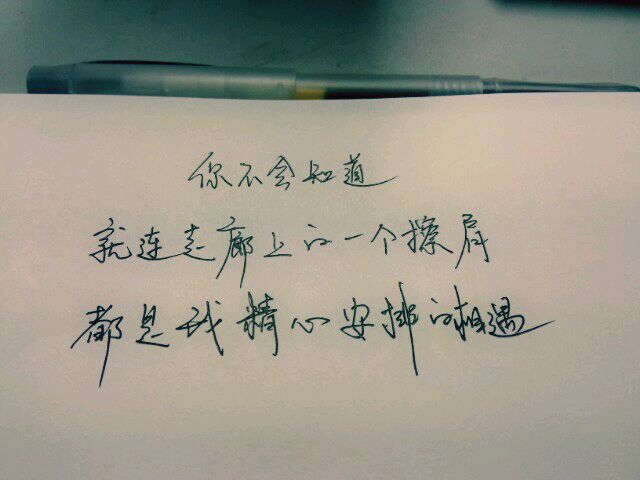 你不会知道
就连走廊上的一个擦肩
都是我精心安排的相遇